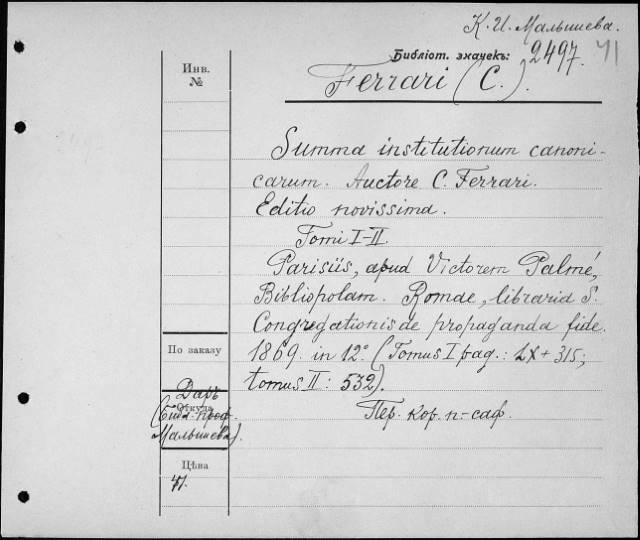 К. И. Малышева.
Библіот. значекъ: 2497. 41
Инв.
№
Ferrari (C.).
Summa institutionum canoni-
carum. Auctore C. Ferrari.
Editio novissima.
Tomi I-II.
Parisiis, apud Victorem Palmé,
Bibliopolam. Romae, libraria S.
Congregationis de propaganda fide.
1869. in 12° (Tomus I pag.: LX + 315;
tomus II: 532).
Пер. кор. п-саф.
По заказу
Даръ
Откуда
(Библ. проф.
Малышева).
Цѣна
41.